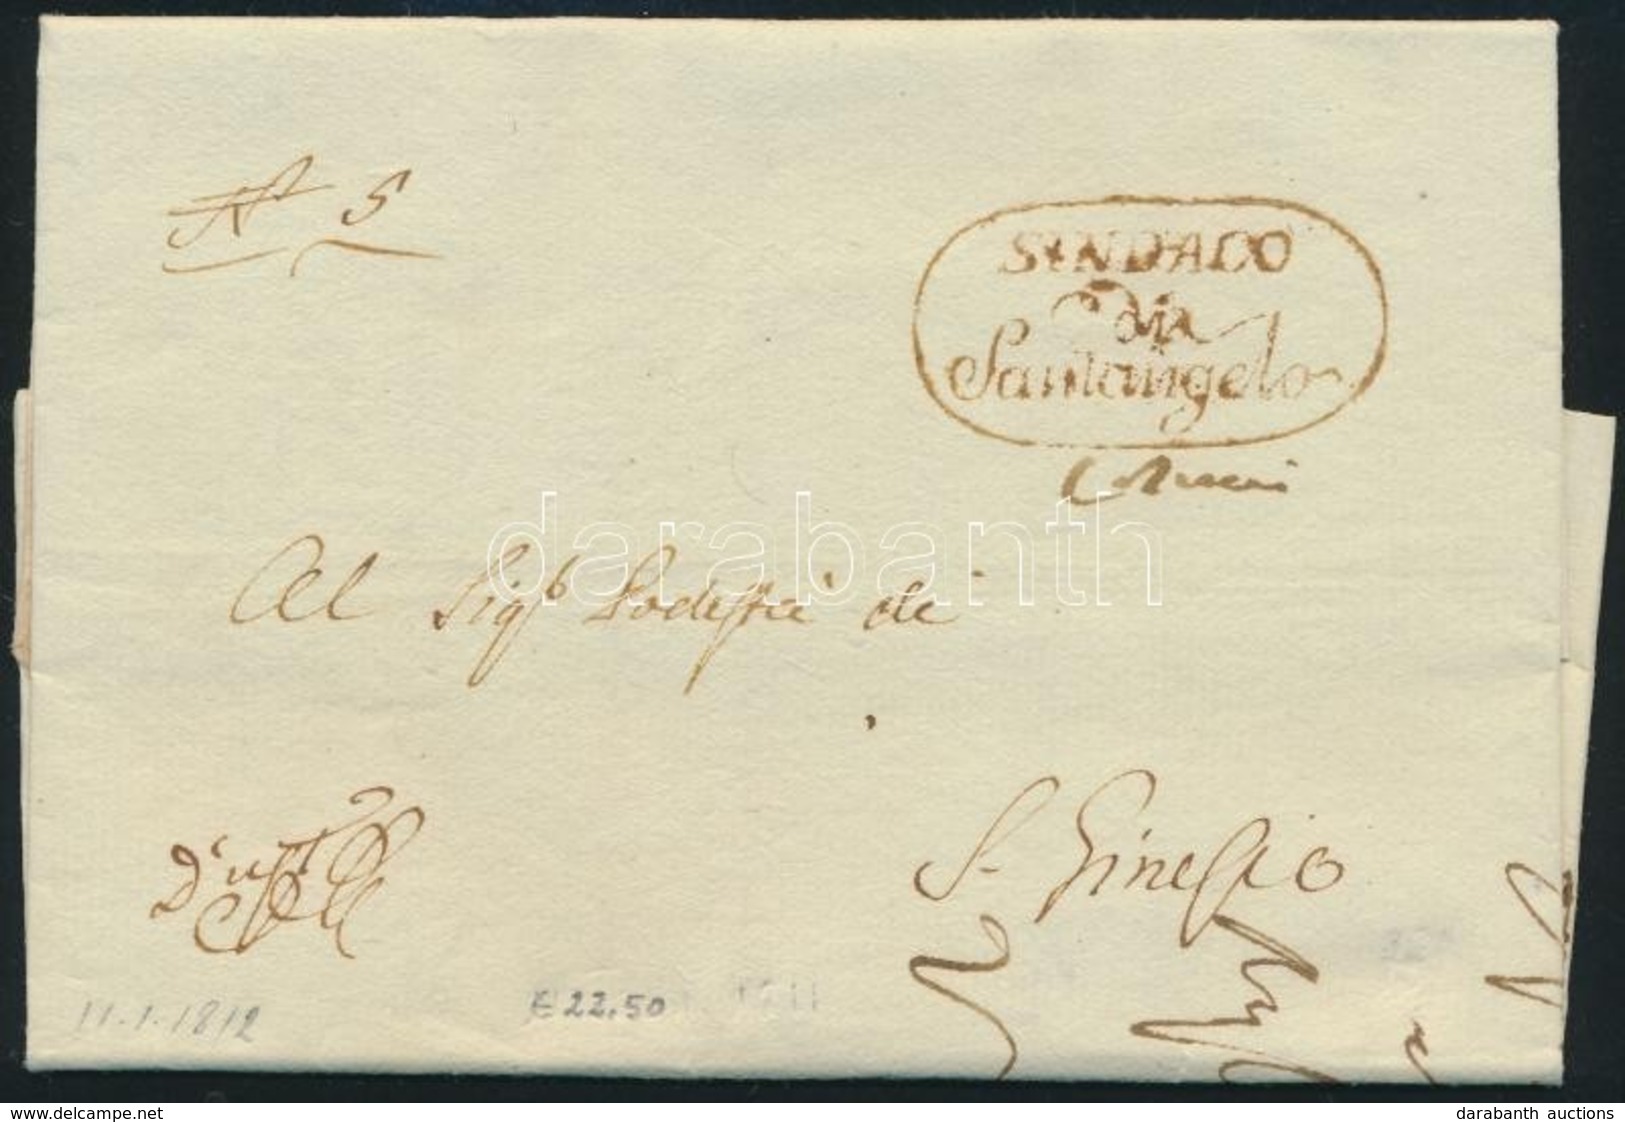 N° 5
SINDACO
di
Santangelo
darabanth
Al Sigr Podestà di
S. Ginesio
11.1.1812
€ 22,50
www.delcampe.net
darabanth auctions